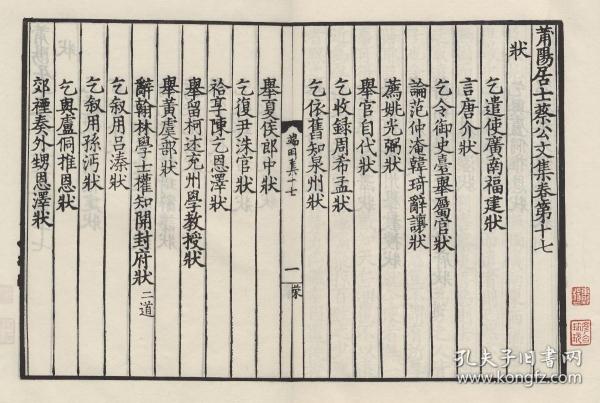 莆陽居士蔡公文集卷第十七
狀
乞遣使廣南福建狀
言唐介狀
乞令御史臺舉屬官狀
論范仲淹韓琦辭讓狀
薦姚光弼狀
舉官自代狀
乞收録周希孟狀
乞依舊知泉州狀
端田集十七
一
蔡
舉夏侯郎中狀
乞復尹洙官狀
祫享陳乞恩澤狀
舉留柯述充州學教授狀
舉黄虞部狀
辭翰林學士權知開封府狀二道
乞叙用吕溱狀
乞叙用孫沔狀
乞與盧侗推恩狀
郊禋奏外甥恩澤狀
孔夫子旧书网
www.kongfz.com